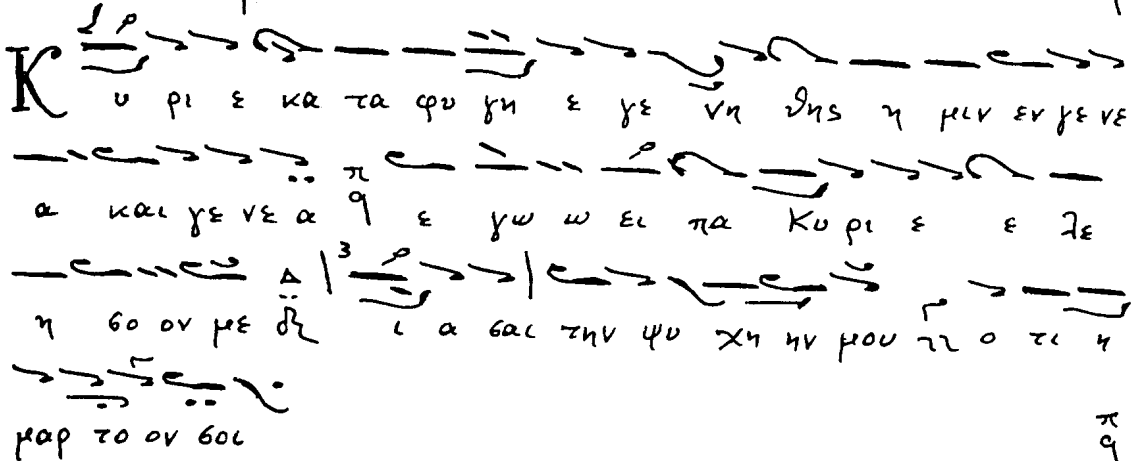 Κ υ ρι ε κα τα φυ γη ε γε νη θης η μιν εν γε νε
α και γε νε α π q ε γω ω ει πα Κυ ρι ε ε λε
η σο ον με Δ ι α σαι την ψυ χη ην μου ο τι η
μαρ το ον σοι π q